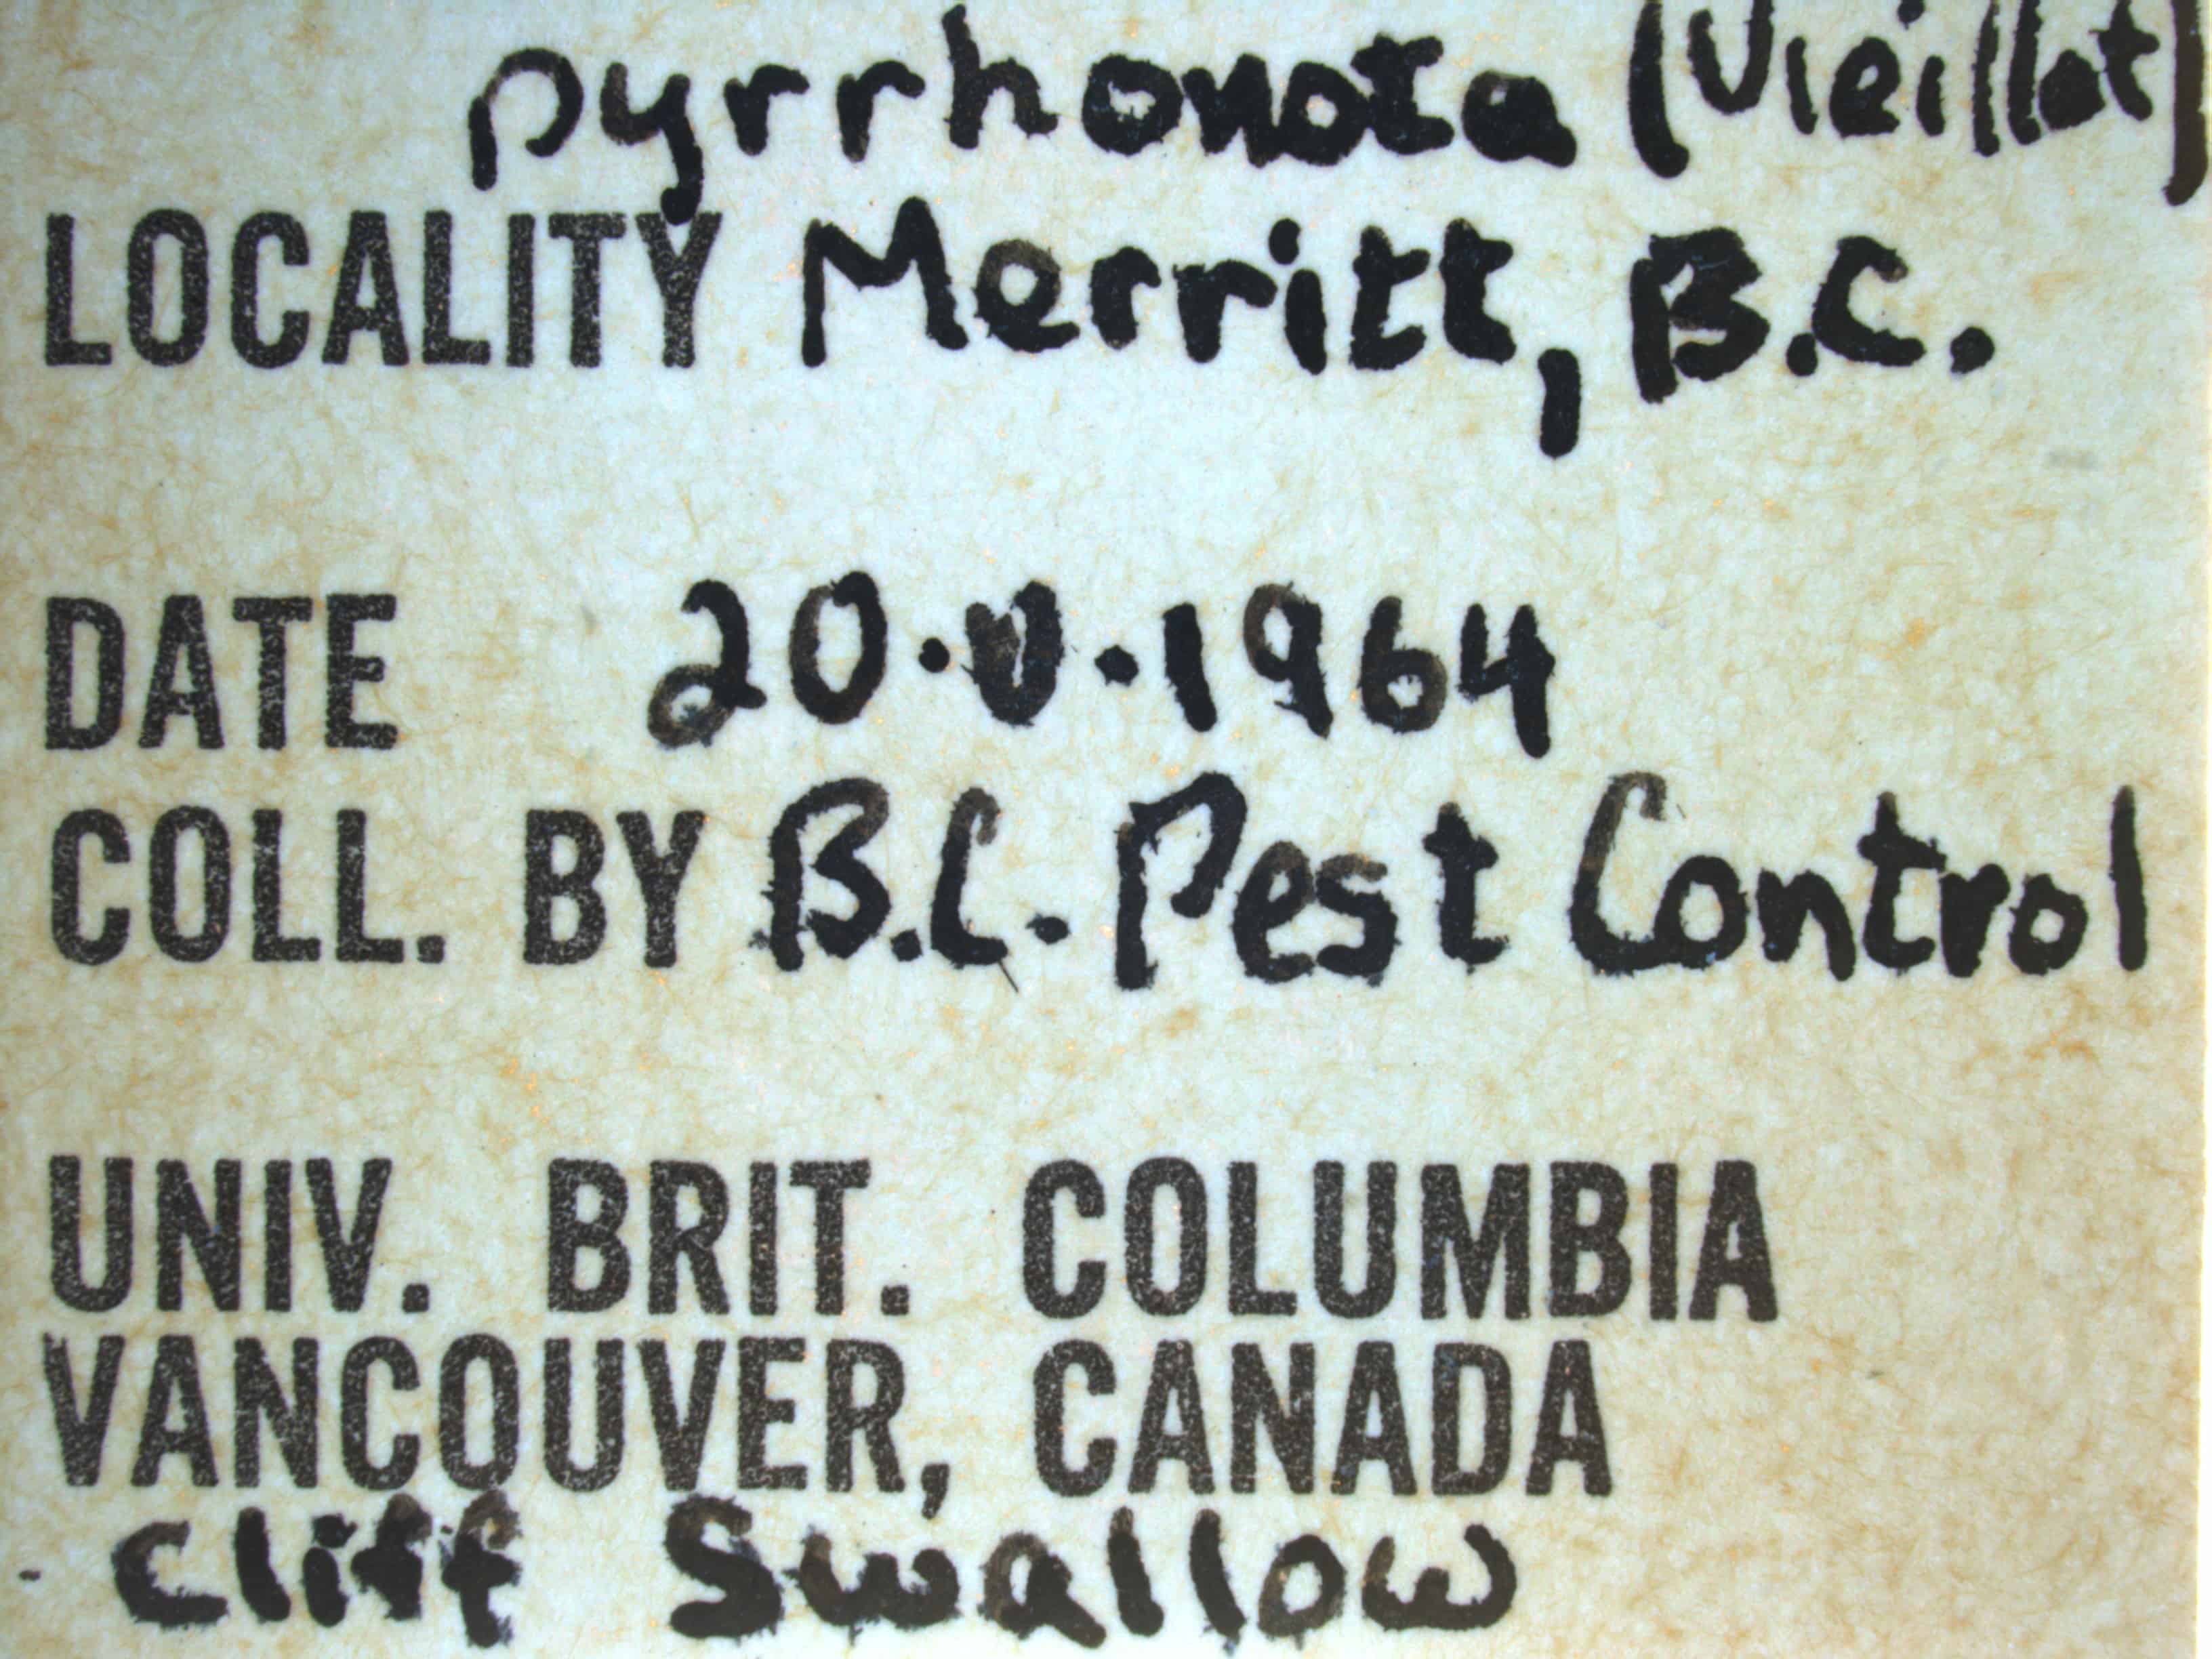 pyrrhonota (Vieillot)
LOCALITY Merritt, B.C.
DATE 20.V.1964
COLL. BY B.C. Pest Control
UNIV. BRIT. COLUMBIA
VANCOUVER, CANADA
Cliff Swallow